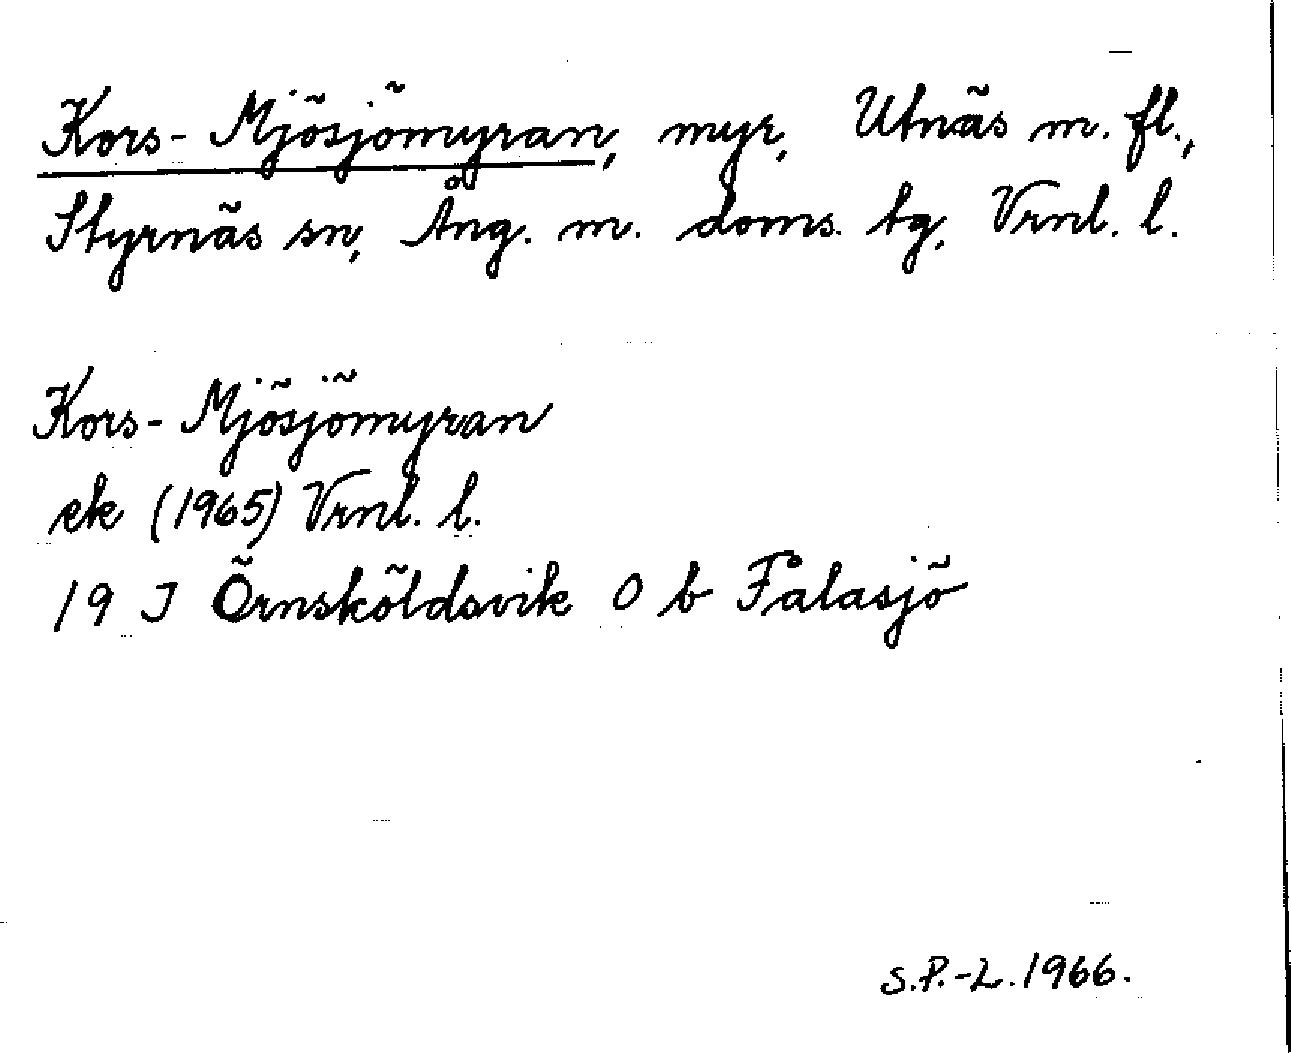 Kors-Mjösjömyran, myr, Utnäs m. fl.,
Styrnäs sn, Ång. m. doms. tg, Vrnl. l.
Kors-Mjösjömyran
ek (1965) Vrnl. l.
19 J Örnsköldsvik 0 b Fålasjö
S.P.-L. 1966.